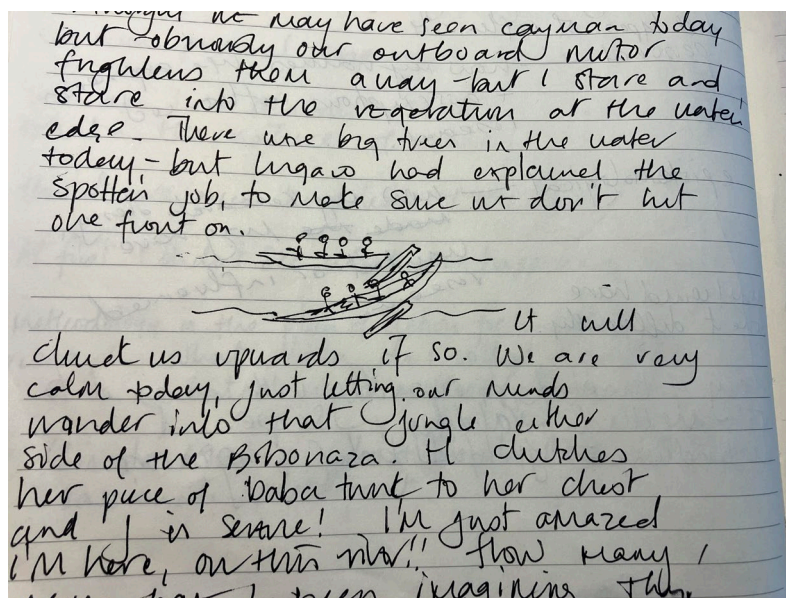 we may have seen cayman today
but obviously our outboard motor
frightens them away - but I stare and
stare into the vegetation at the water
edge. There are big trees in the water
today - but had explained the
job, to make sure we don't hit
one front on.
It will
us upwards if so. We are very
calm today, just letting our minds
wander into that jungle either
side of the Bobonaza. H clutches
her piece of tunk to her chest
and J is serene! I'm just amazed
I'm here, on this river!! How many
I been imagining this